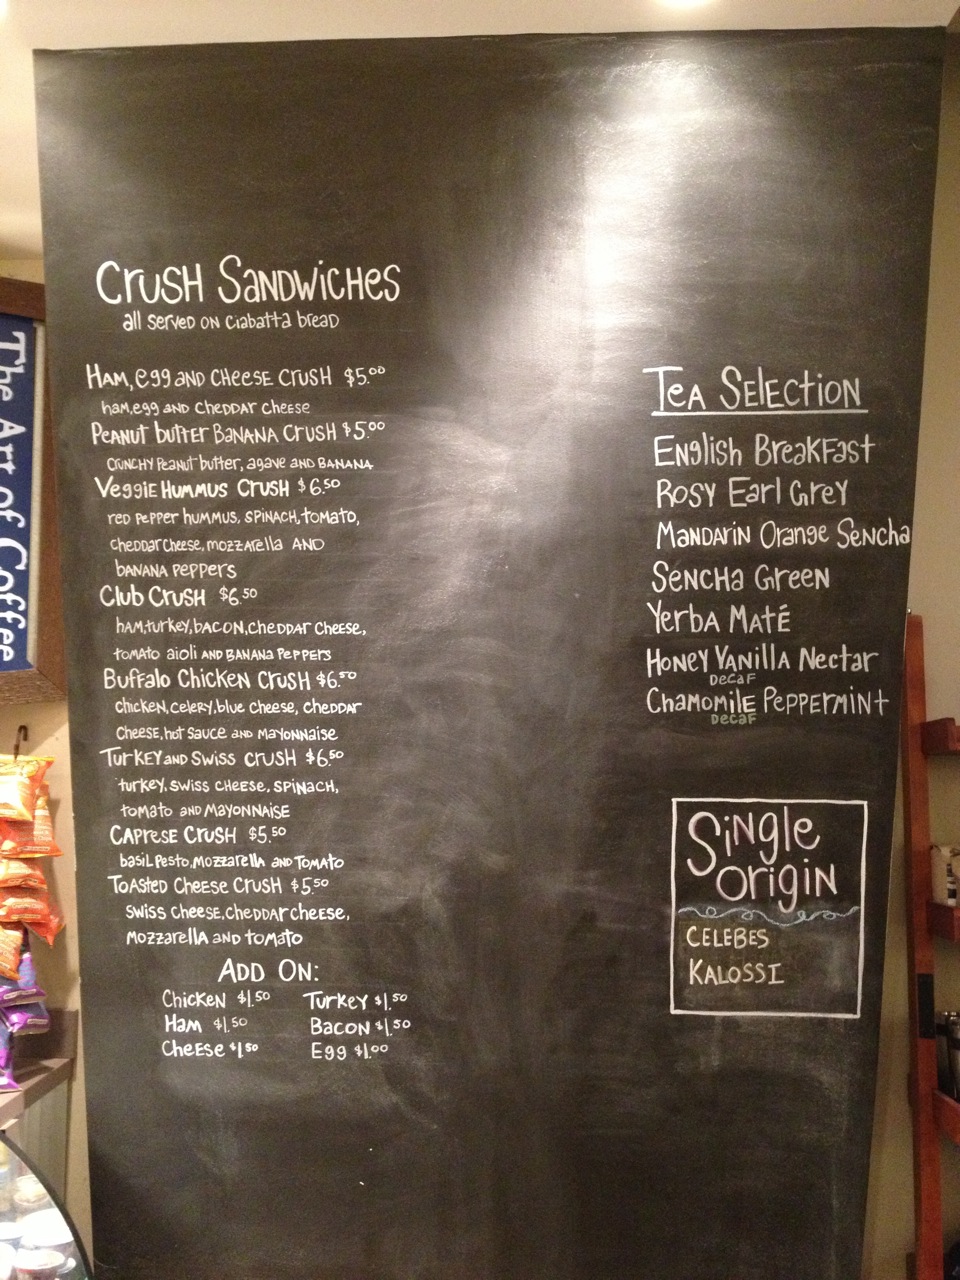 The Art of Coffee
Crush Sandwiches
all served on ciabatta bread
Ham, egg and cheese crush $5.00
ham, egg and cheddar cheese
Peanut butter Banana crush $5.00
crunchy peanut butter, agave and banana
Veggie Hummus crush $6.50
red pepper hummus, spinach, tomato,
cheddar cheese, mozzarella and
banana peppers
Club Crush $6.50
ham, turkey, bacon, cheddar cheese,
tomato aioli and banana peppers
Buffalo Chicken Crush $6.50
chicken, celery, blue cheese, cheddar
cheese, hot sauce and mayonnaise
Turkey and Swiss crush $6.50
turkey, swiss cheese, spinach,
tomato and mayonnaise
Caprese Crush $5.50
basil pesto, mozzarella and tomato
Toasted Cheese Crush $5.50
swiss cheese, cheddar cheese,
mozzarella and tomato
Add On:
Chicken $1.50 Turkey $1.50
Ham $1.50 Bacon $1.50
Cheese $1.50 Egg $1.00
Tea Selection
English Breakfast
Rosy Earl Grey
Mandarin Orange Sencha
Sencha Green
Yerba Maté
Honey Vanilla Nectar
Decaf
Chamomile Peppermint
Decaf
Single
Origin
CELEBES
KALOSSI